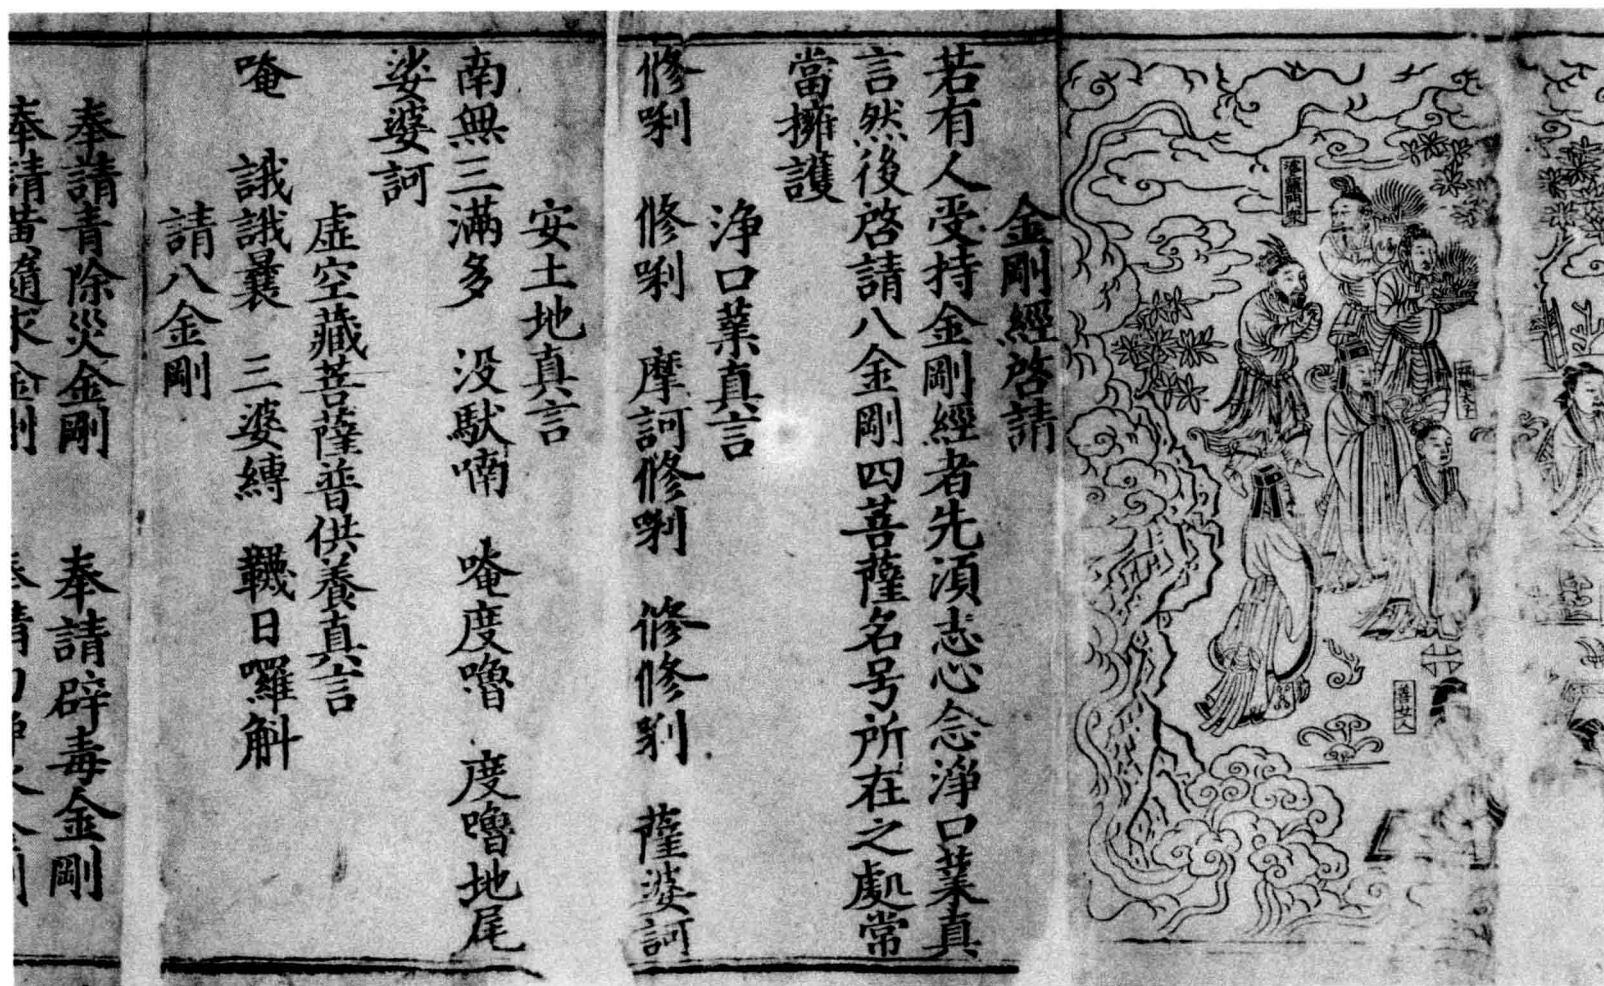 善女人
金剛經啓請
若有人受持金剛經者先湏志心念淨口業真
言然後啓請八金剛四菩薩名号所在之處常
當擁護
淨口業真言
修唎 修唎 摩訶修唎 修修唎 薩婆訶
安土地真言
南無三滿多 沒馱喃 唵度嚕 度嚕地尾
娑婆訶
虛空藏菩薩普供養真言
唵 誐誐曩 三婆縛 韈日囉斛
請八金剛
奉請青除災金剛 奉請辟毒金剛
奉請黃隨求金剛 奉請